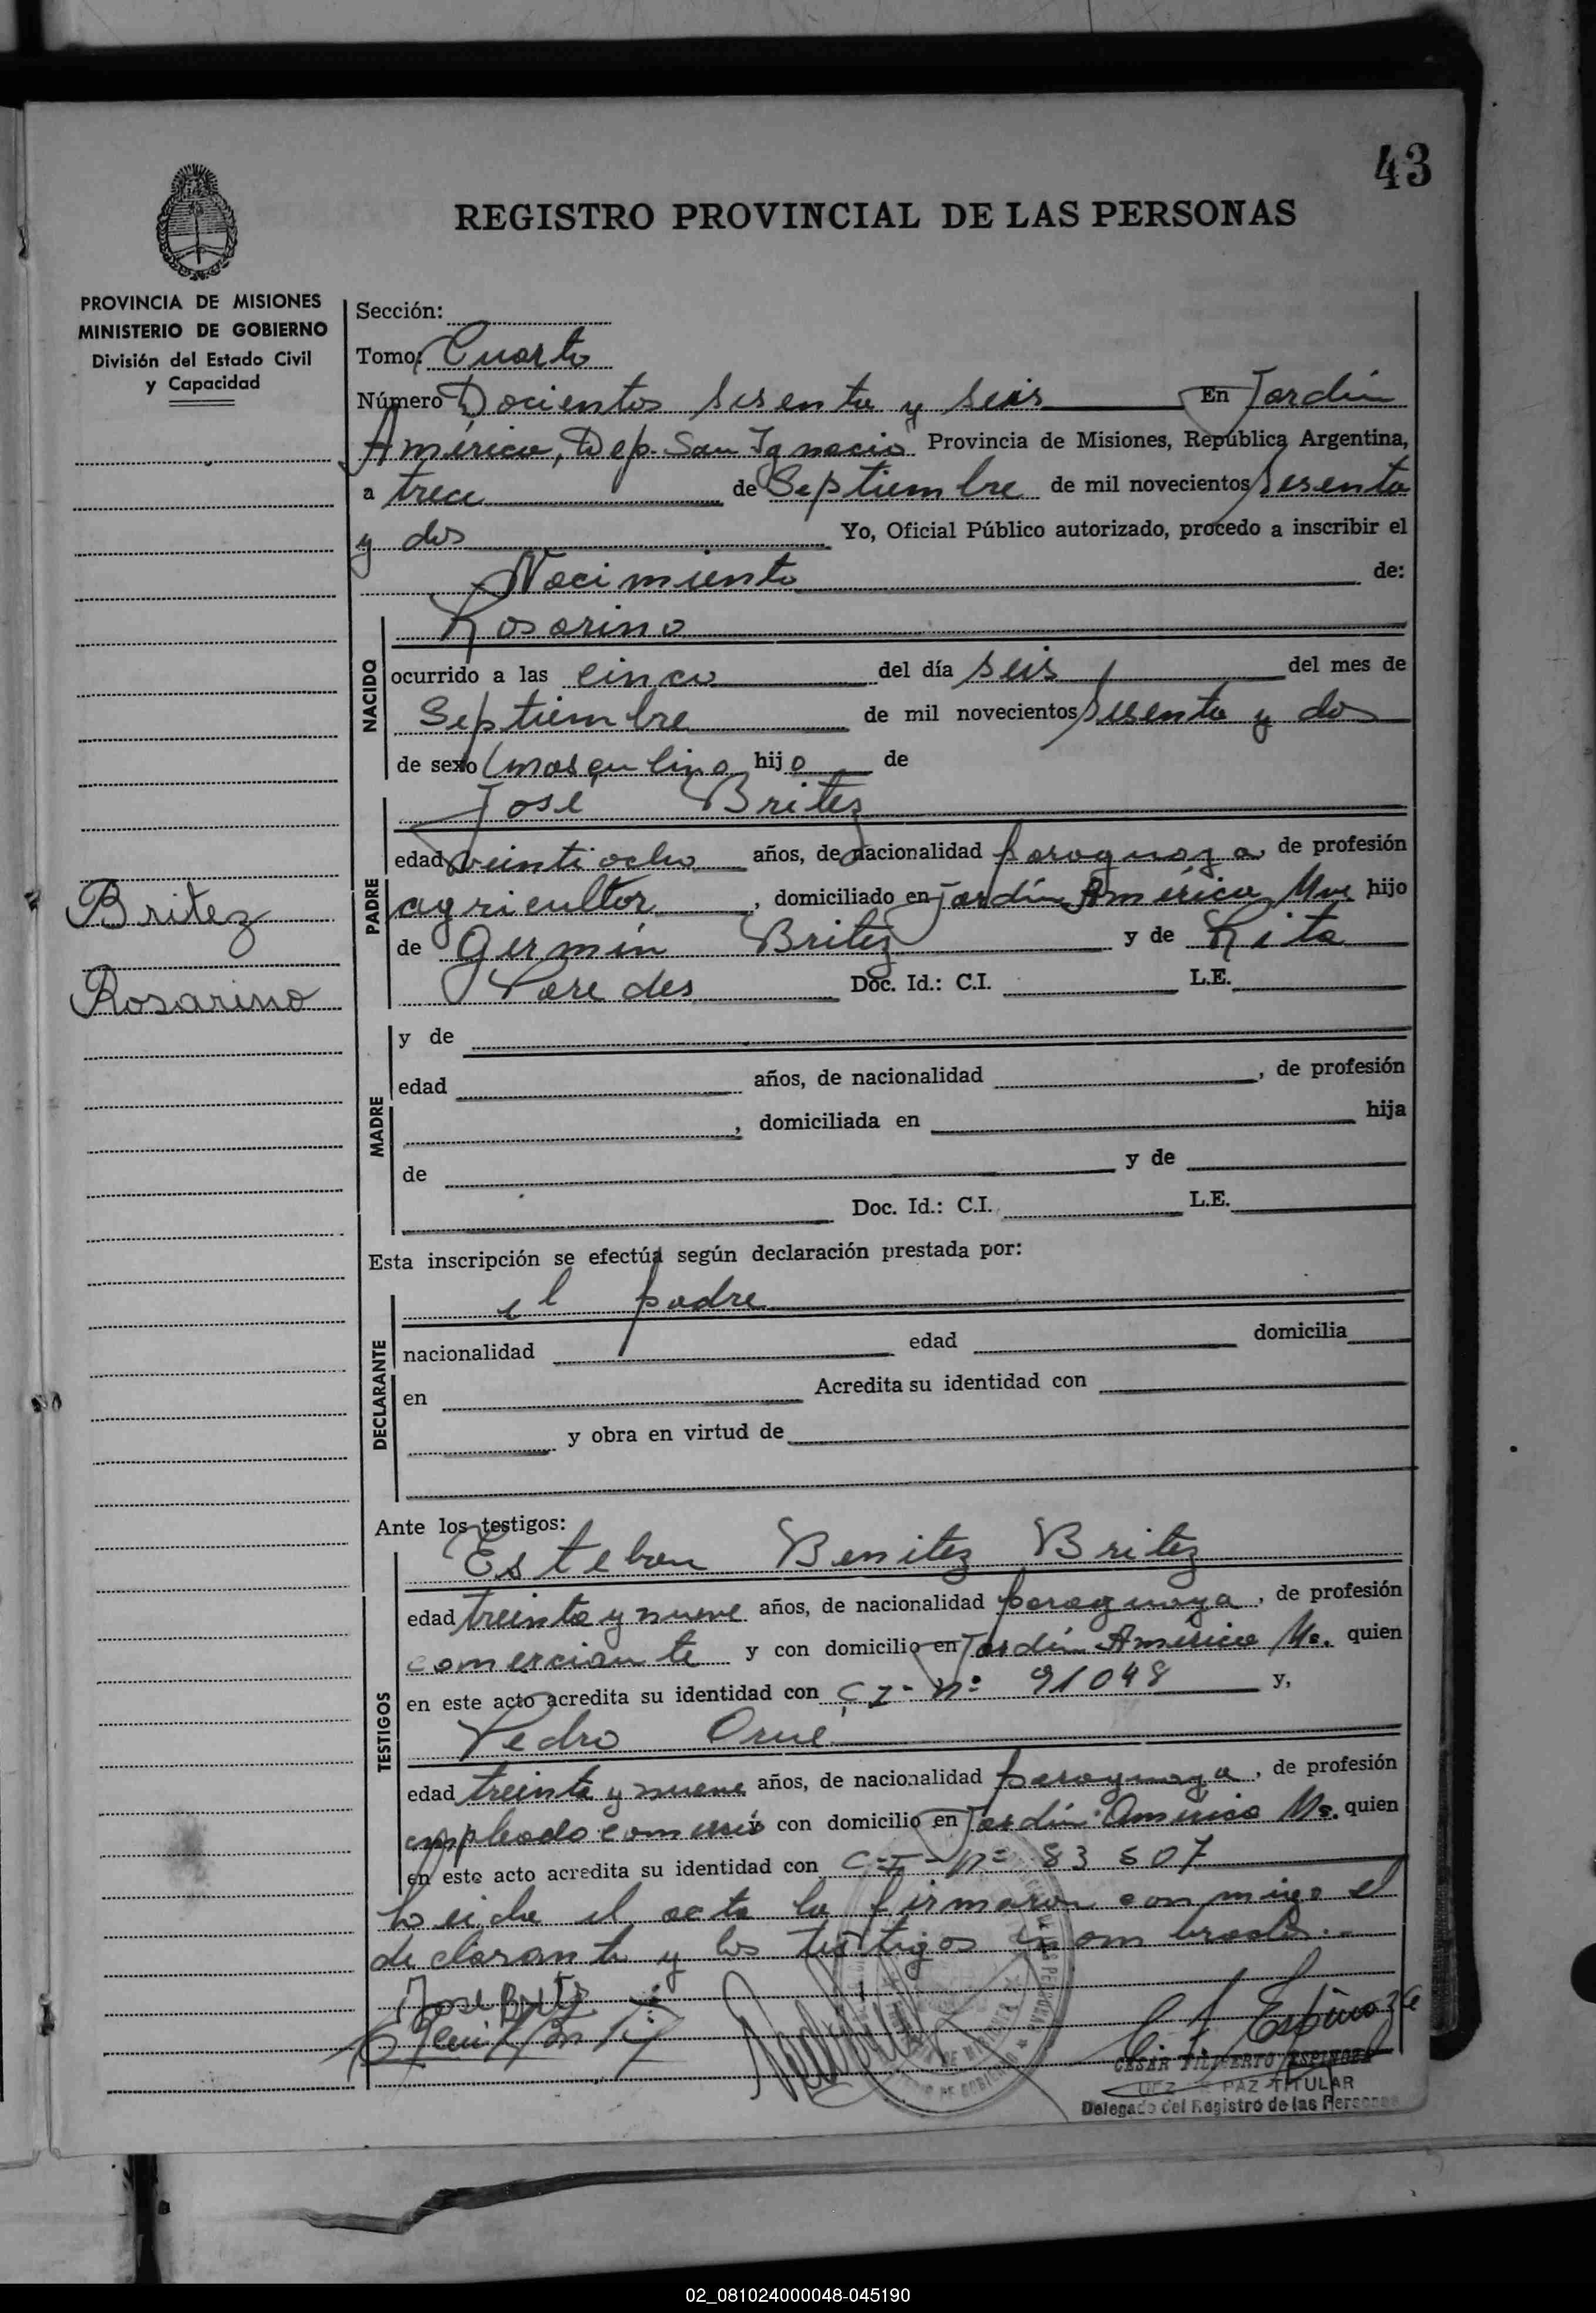 43
REGISTRO PROVINCIAL DE LAS PERSONAS
PROVINCIA DE MISIONES
MINISTERIO DE GOBIERNO
División del Estado Civil
y Capacidad
Sección:
Tomo: Cuarto
Número Docientos sesenta y seis En Jardín
América, Dep. San Ignacio Provincia de Misiones, República Argentina,
a trece de Septiembre de mil novecientos sesenta
y dos Yo, Oficial Público autorizado, procedo a inscribir el
Nacimiento de:
NACIDO
Rosarino
ocurrido a las cinco del día seis del mes de
Septiembre de mil novecientos sesenta y dos
de sexo masculino hijo de
PADRE
José Britez
edad veintiocho años, de nacionalidad paraguaya, de profesión
agricultor, domiciliado en Jardín América Mnes hijo
de Germín Britez y de Rita
Paredes Doc. Id.: C.I. L.E.
Britez
Rosarino
MADRE
y de
edad años, de nacionalidad , de profesión
, domiciliada en hija
de y de
Doc. Id.: C.I. L.E.
Esta inscripción se efectúa según declaración prestada por:
DECLARANTE
el padre
nacionalidad edad domicilia
en Acredita su identidad con
y obra en virtud de
Ante los testigos:
TESTIGOS
Esteban Benitez Britez
edad treinta y nueve años, de nacionalidad paraguaya, de profesión
comerciante y con domicilio en Jardín América Ms. quien
en este acto acredita su identidad con C I - nº 91048 y,
Pedro Orué
edad treinta y nueve años, de nacionalidad paraguaya, de profesión
empleado comercio con domicilio en Jardín América Ms. quien
en este acto acredita su identidad con C-I- nº 83 507
Leída el acta la firmaron conmigo el
declarante y los testigos
José Britez
C F Espinoza
CESAR FILIBERTO ESPINOZA
JUEZ DE PAZ TITULAR
Delegado del Registro de las Personas
02_081024000048-045190